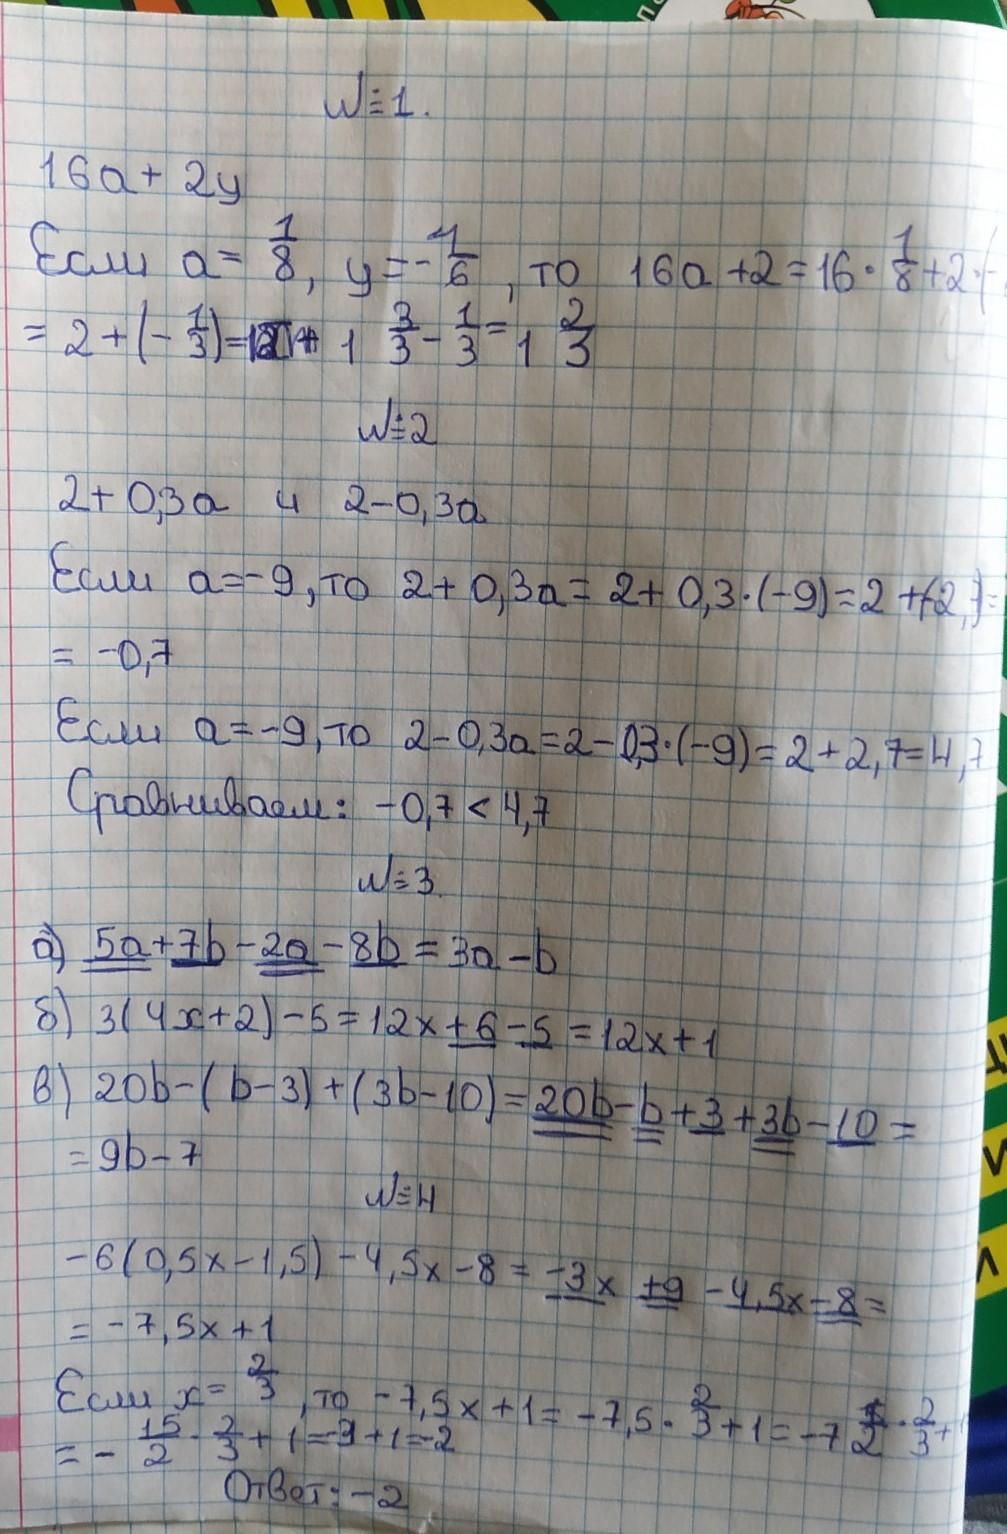 №1.
16a + 2y
Если a = 1/8, y = -1/6, то 16a + 2 = 16 · 1/8 + 2 · (-
= 2 + (- 1/3) = 1 3/3 - 1/3 = 1 2/3
№2
2 + 0,3a и 2 - 0,3a
Если a = -9, то 2 + 0,3a = 2 + 0,3 · (-9) = 2 + (-2,7) =
= -0,7
Если a = -9, то 2 - 0,3a = 2 - 0,3 · (-9) = 2 + 2,7 = 4,7
Сравниваем: -0,7 < 4,7
№3.
а) 5a + 7b - 2a - 8b = 3a - b
б) 3(4x + 2) - 5 = 12x + 6 - 5 = 12x + 1
в) 20b - (b - 3) + (3b - 10) = 20b - b + 3 + 3b - 10 =
= 9b - 7
№4
-6(0,5x - 1,5) - 4,5x - 8 = -3x + 9 - 4,5x - 8 =
= -7,5x + 1
Если x = 2/3, то -7,5x + 1 = -7,5 · 2/3 + 1 = -7 1/2 · 2/3 +
= - 15/2 · 2/3 + 1 = -3 + 1 = -2
Ответ: -2